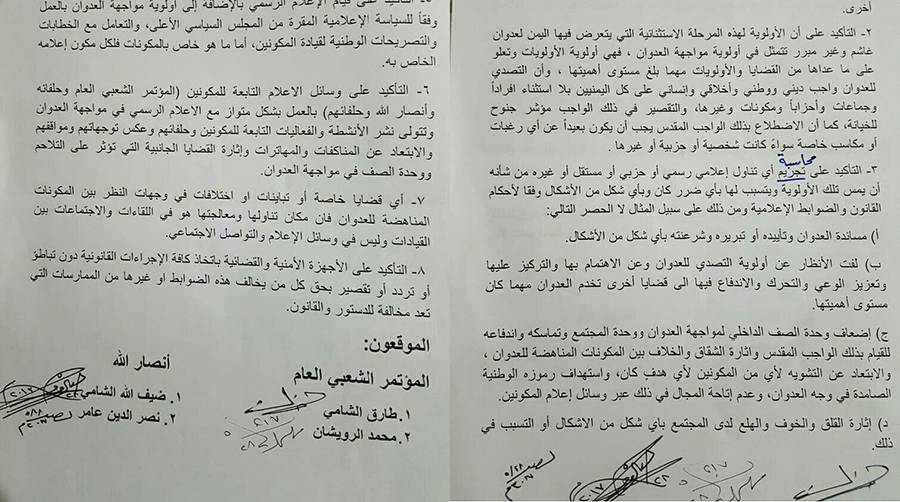 أخرى.
٢- التأكيد على أن الأولوية لهذه المرحلة الاستثنائية التي يتعرض فيها اليمن لعدوان
غاشم وغير مبرر تتمثل في أولوية مواجهة العدوان ، فهي أولوية الأولويات وتعلو
على ما عداها من القضايا والأولويات مهما بلغ مستوى أهميتها ، وأن التصدي
للعدوان واجب ديني ووطني وأخلاقي وإنساني على كل اليمنيين بلا استثناء أفراداً
وجماعات وأحزاباً ومكونات وغيرها، والتقصير في ذلك الواجب مؤشر جنوح
للخيانة، كما أن الاضطلاع بذلك الواجب المقدس يجب أن يكون بعيداً عن أي رغبات
أو مكاسب خاصة سواءً كانت شخصية أو حزبية أو غيرها .
محاسبة
٣- التأكيد على تجريم أي تناول إعلامي رسمي أو حزبي أو مستقل أو غيره من شأنه
أن يمس تلك الأولوية ويتسبب لها بأي ضرر كان وبأي شكل من الأشكال وفقا لأحكام
القانون والضوابط الإعلامية ومن ذلك على سبيل المثال لا الحصر التالي:
أ) مساندة العدوان وتأييده أو تبريره وشرعنته بأي شكل من الأشكال.
ب) لفت الأنظار عن أولوية التصدي للعدوان وعن الاهتمام بها والتركيز عليها
وتعزيز الوعي والتحرك والاندفاع فيها الى قضايا أخرى تخدم العدوان مهما كان
مستوى أهميتها.
ج) إضعاف وحدة الصف الداخلي لمواجهة العدوان ووحدة المجتمع وتماسكه واندفاعه
للقيام بذلك الواجب المقدس واثارة الشقاق والخلاف بين المكونات المناهضة للعدوان ،
والابتعاد عن التشويه لأي من المكونين لأي هدفٍ كان، واستهداف رموزه الوطنية
الصامدة في وجه العدوان، وعدم إتاحة المجال في ذلك عبر وسائل إعلام المكونين.
د) إثارة القلق والخوف والهلع لدى المجتمع بأي شكل من الاشكال أو التسبب في
ذلك.
الإعلام الرسمي بالإضافة إلى أولوية مواجهة العدوان بالعمل
وفقاً للسياسة الإعلامية المقرة من المجلس السياسي الأعلى، والتعامل مع الخطابات
والتصريحات الوطنية لقيادة المكونين، أما ما هو خاص بالمكونات فلكل مكون إعلامه
الخاص به.
٦- التأكيد على وسائل الاعلام التابعة للمكونين (المؤتمر الشعبي العام وحلفائه
وأنصار الله وحلفائهم) بالعمل بشكل متواز مع الاعلام الرسمي في مواجهة العدوان
وتتولى نشر الأنشطة والفعاليات التابعة للمكونين وحلفائها وعكس توجهاتهم ومواقفهم
والابتعاد عن المناكفات والمهاترات وإثارة القضايا الجانبية التي تؤثر على التلاحم
ووحدة الصف في مواجهة العدوان.
٧- أي قضايا خاصة أو تباينات او اختلافات في وجهات النظر بين المكونات
المناهضة للعدوان فان مكان تناولها ومعالجتها هو في اللقاءات والاجتماعات بين
القيادات وليس في وسائل الإعلام والتواصل الاجتماعي.
٨- التأكيد على الأجهزة الأمنية والقضائية باتخاذ كافة الإجراءات القانونية دون تباطؤ
أو تردد أو تقصير بحق كل من يخالف هذه الضوابط او غيرها من الممارسات التي
تعد مخالفة للدستور والقانون.
الموقعون:
المؤتمر الشعبي العام
١. طارق الشامي
٢. محمد الرويشان
أنصار الله
١. ضيف الله الشامي
٢. نصر الدين عامر